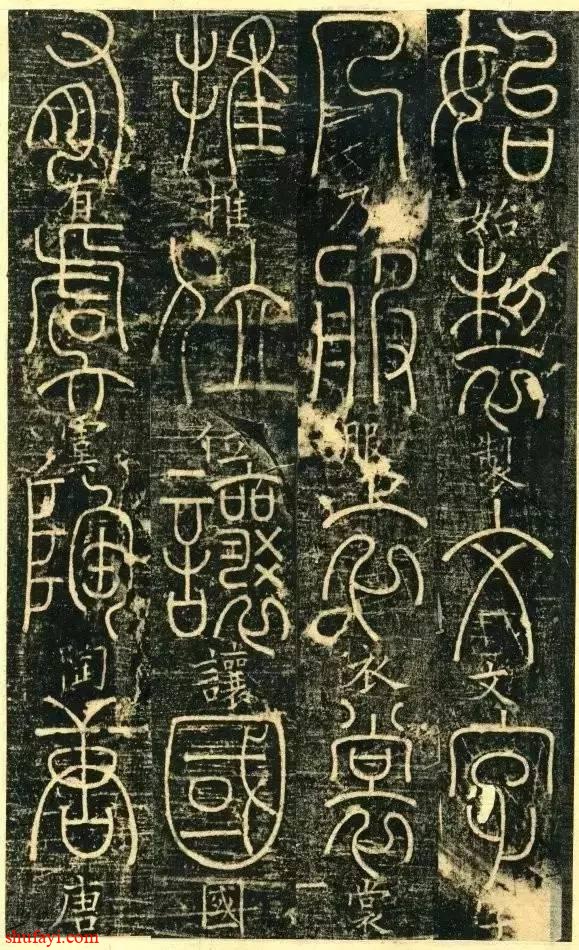 始制文字
乃服衣裳
推位讓國
有虞陶唐
始製文字
乃服衣裳
推位讓國
有虞陶唐
shufayi.com